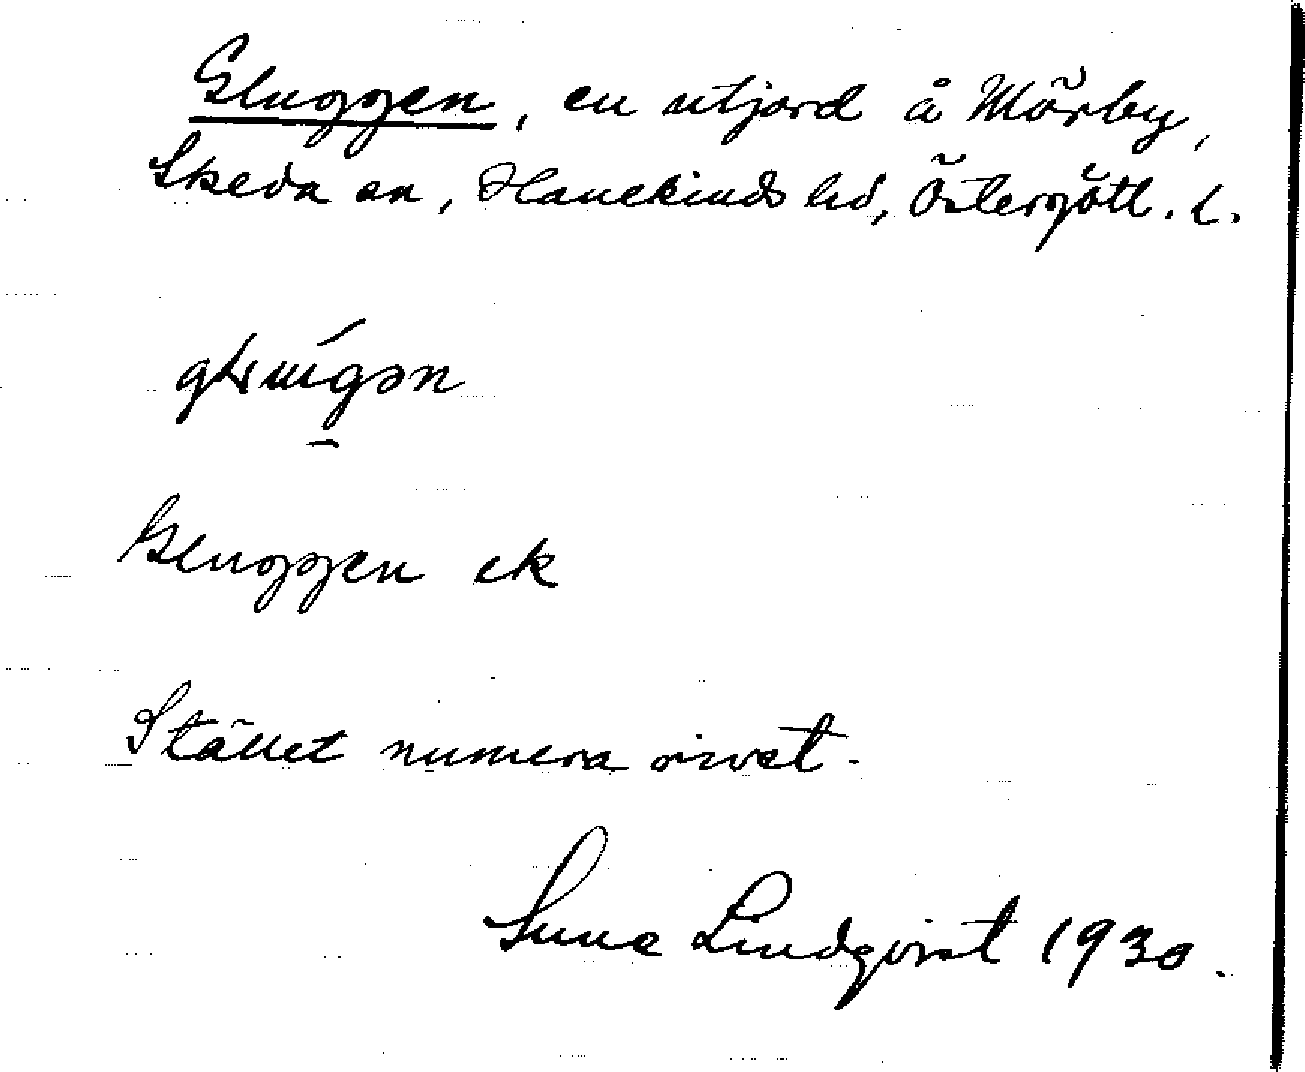 Gluggen, en utjord å Mörby,
Skeda sn, Hanekinds hd, Östergötl. l.
Gluggen ek
Stället numera rivet.
Sune Lindqvist 1930.